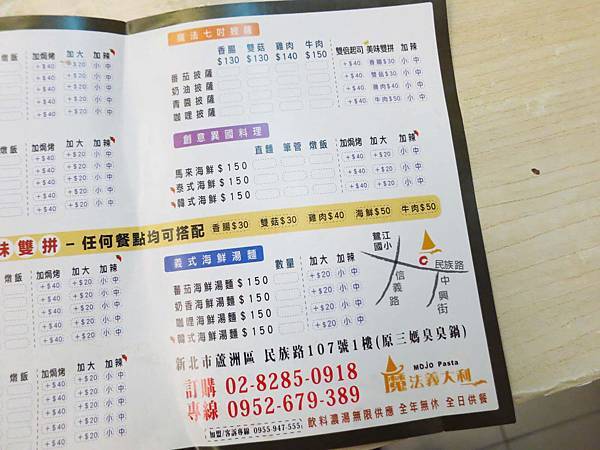 魔法七吋披薩
香腸 雙菇 雞肉 牛肉 雙倍起司 美味雙拼 加辣
$130 $130 $140 $150 +$40 香腸$30 小 中
番茄披薩 +$40 雙菇$30 小 中
奶油披薩 +$40 雞肉$40 小 中
青醬披薩 +$40 牛肉$50 小 中
咖哩披薩
創意異國料理
直麵 筆管 燉飯 加焗烤 加大 加辣
馬來海鮮$150 +$40 +$20 小 中
泰式海鮮$150 +$40 +$20 小 中
韓式海鮮$150 +$40 +$20 小 中
味雙拼－任何餐點均可搭配 香腸$30 雙菇$30 雞肉$40 海鮮$50 牛肉$50
義式海鮮湯麵 數量 加焗烤 加大 加辣
番茄海鮮湯麵$150 +$40 +$20 小 中
奶香海鮮湯麵$150 +$40 +$20 小 中
咖哩海鮮湯麵$150 +$40 +$20 小 中
韓式海鮮湯麵$150 +$40 +$20 小 中
鷺江國小
信義路
民族路
中興街
新北市蘆洲區 民族路107號1樓(原三媽臭臭鍋)
訂購專線
02-8285-0918
0952-679-389
0955-947-555
MOJO Pasta
魔法義大利
飲料濃湯無限供應 全年無休 全日供餐
燉飯 加焗烤 加大 加辣
+$40 +$20 小 中
+$40 +$20 小 中
+$40 +$20 小 中
+$40 +$20 小 中
燉飯 加焗烤 加大 加辣
+$40 +$20 小 中
+$40 +$20 小 中
+$40 +$20 小 中
+$40 +$20 小 中
燉飯 加焗烤 加大 加辣
+$40 +$20 小 中
+$40 +$20 小 中
+$40 +$20 小 中
+$40 +$20 小 中
燉飯 加焗烤 加大 加辣
+$40 +$20 小 中
+$40 +$20 小 中
+$40 +$20 小 中
+$40 +$20 小 中